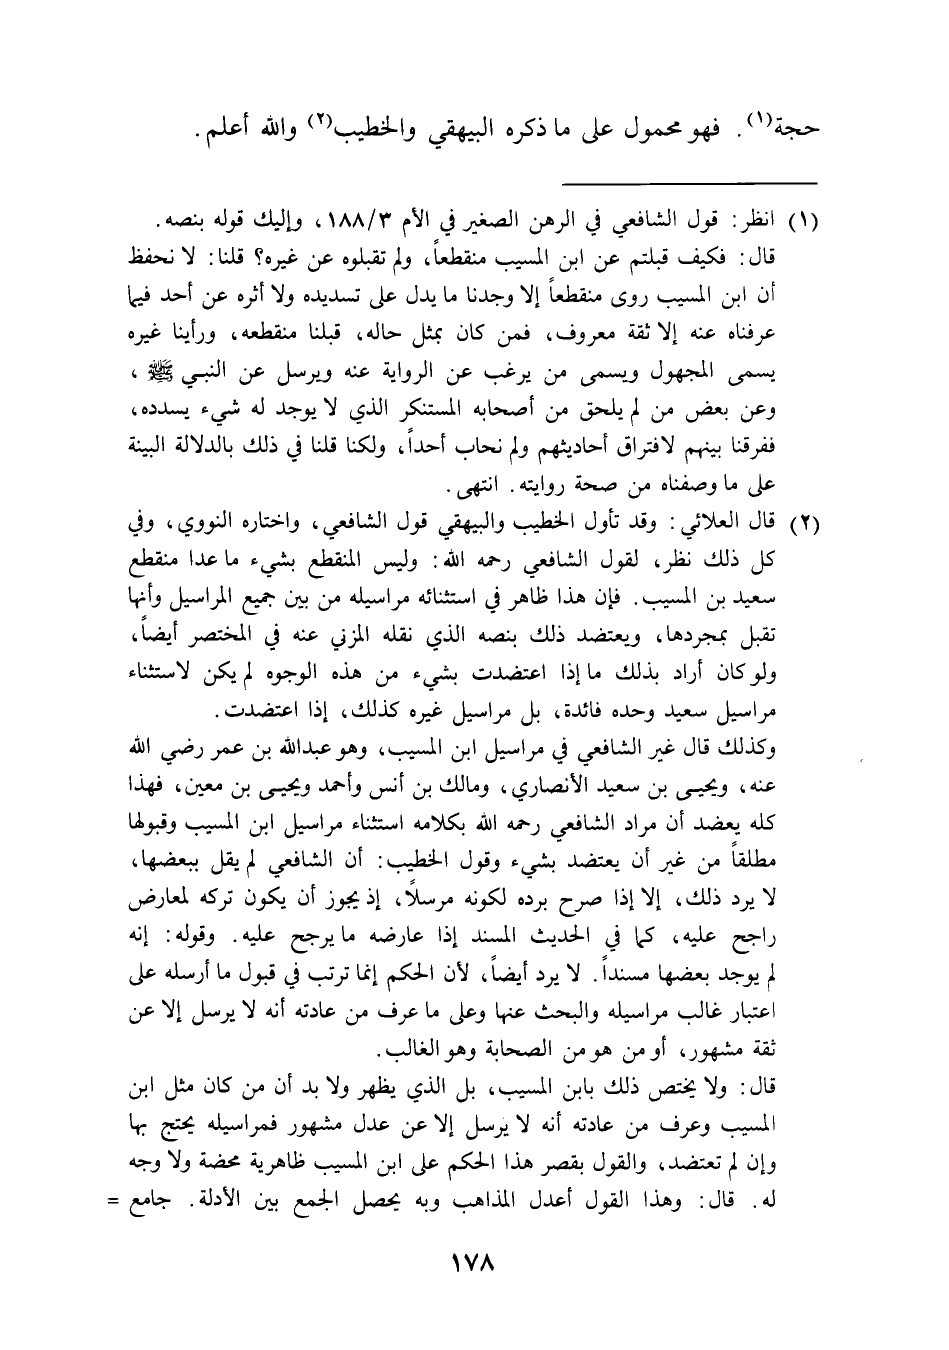 حجة(١). فهو محمول على ما ذكره البيهقي والخطيب(٢) والله أعلم.
(١) انظر: قول الشافعي في الرهن الصغير في الأم ١٨٨/٣، وإليك قوله بنصه.
قال: فكيف قبلتم عن ابن المسيب منقطعاً، ولم تقبلوه عن غيره؟ قلنا: لا نحفظ
أن ابن المسيب روى منقطعاً إلا وجدنا ما يدل على تسديده ولا أثره عن أحد فيما
عرفناه عنه إلا ثقة معروف، فمن كان بمثل حاله، قبلنا منقطعه، ورأينا غيره
يسمى المجهول ويسمى من يرغب عن الرواية عنه ويرسل عن النبي ﷺ ،
وعن بعض من لم يلحق من أصحابه المستنكر الذي لا يوجد له شيء يسدده،
ففرقنا بينهم لافتراق أحاديثهم ولم نحاب أحداً، ولكنا قلنا في ذلك بالدلالة البينة
على ما وصفناه من صحة روايته. انتهى.
(٢) قال العلائي: وقد تأول الخطيب والبيهقي قول الشافعي، واختاره النووي، وفي
كل ذلك نظر، لقول الشافعي رحمه الله: وليس المنقطع بشيء ما عدا منقطع
سعيد بن المسيب. فإن هذا ظاهر في استثنائه مراسيله من بين جميع المراسيل وأنها
تقبل بمجردها، ويعتضد ذلك بنصه الذي نقله المزني عنه في المختصر أيضاً،
ولو كان أراد بذلك ما إذا اعتضدت بشيء من هذه الوجوه لم يكن لاستثناء
مراسيل سعيد وحده فائدة، بل مراسيل غيره كذلك، إذا اعتضدت.
وكذلك قال غير الشافعي في مراسيل ابن المسيب، وهو عبدالله بن عمر رضي الله
عنه، ويحيى بن سعيد الأنصاري، ومالك بن أنس وأحمد ويحيى بن معين، فهذا
كله يعضد أن مراد الشافعي رحمه الله بكلامه استثناء مراسيل ابن المسيب وقبولها
مطلقاً من غير أن يعتضد بشيء وقول الخطيب: أن الشافعي لم يقل ببعضها،
لا يرد ذلك، إلا إذا صرح برده لكونه مرسلًا، إذ يجوز أن يكون تركه لمعارض
راجح عليه، كما في الحديث المسند إذا عارضه ما يرجح عليه. وقوله: إنه
لم يوجد بعضها مسنداً. لا يرد أيضاً، لأن الحكم إنما ترتب في قبول ما أرسله على
اعتبار غالب مراسيله والبحث عنها وعلى ما عرف من عادته أنه لا يرسل إلا عن
ثقة مشهور، أو من هو من الصحابة وهو الغالب.
قال: ولا يختص ذلك بابن المسيب، بل الذي يظهر ولا بد أن من كان مثل ابن
المسيب وعرف من عادته أنه لا يرسل إلا عن عدل مشهور فمراسيله يحتج بها
وإن لم تعتضد، والقول بقصر هذا الحكم على ابن المسيب ظاهرية محضة ولا وجه
له. قال: وهذا القول أعدل المذاهب وبه يحصل الجمع بين الأدلة. جامع =
١٧٨